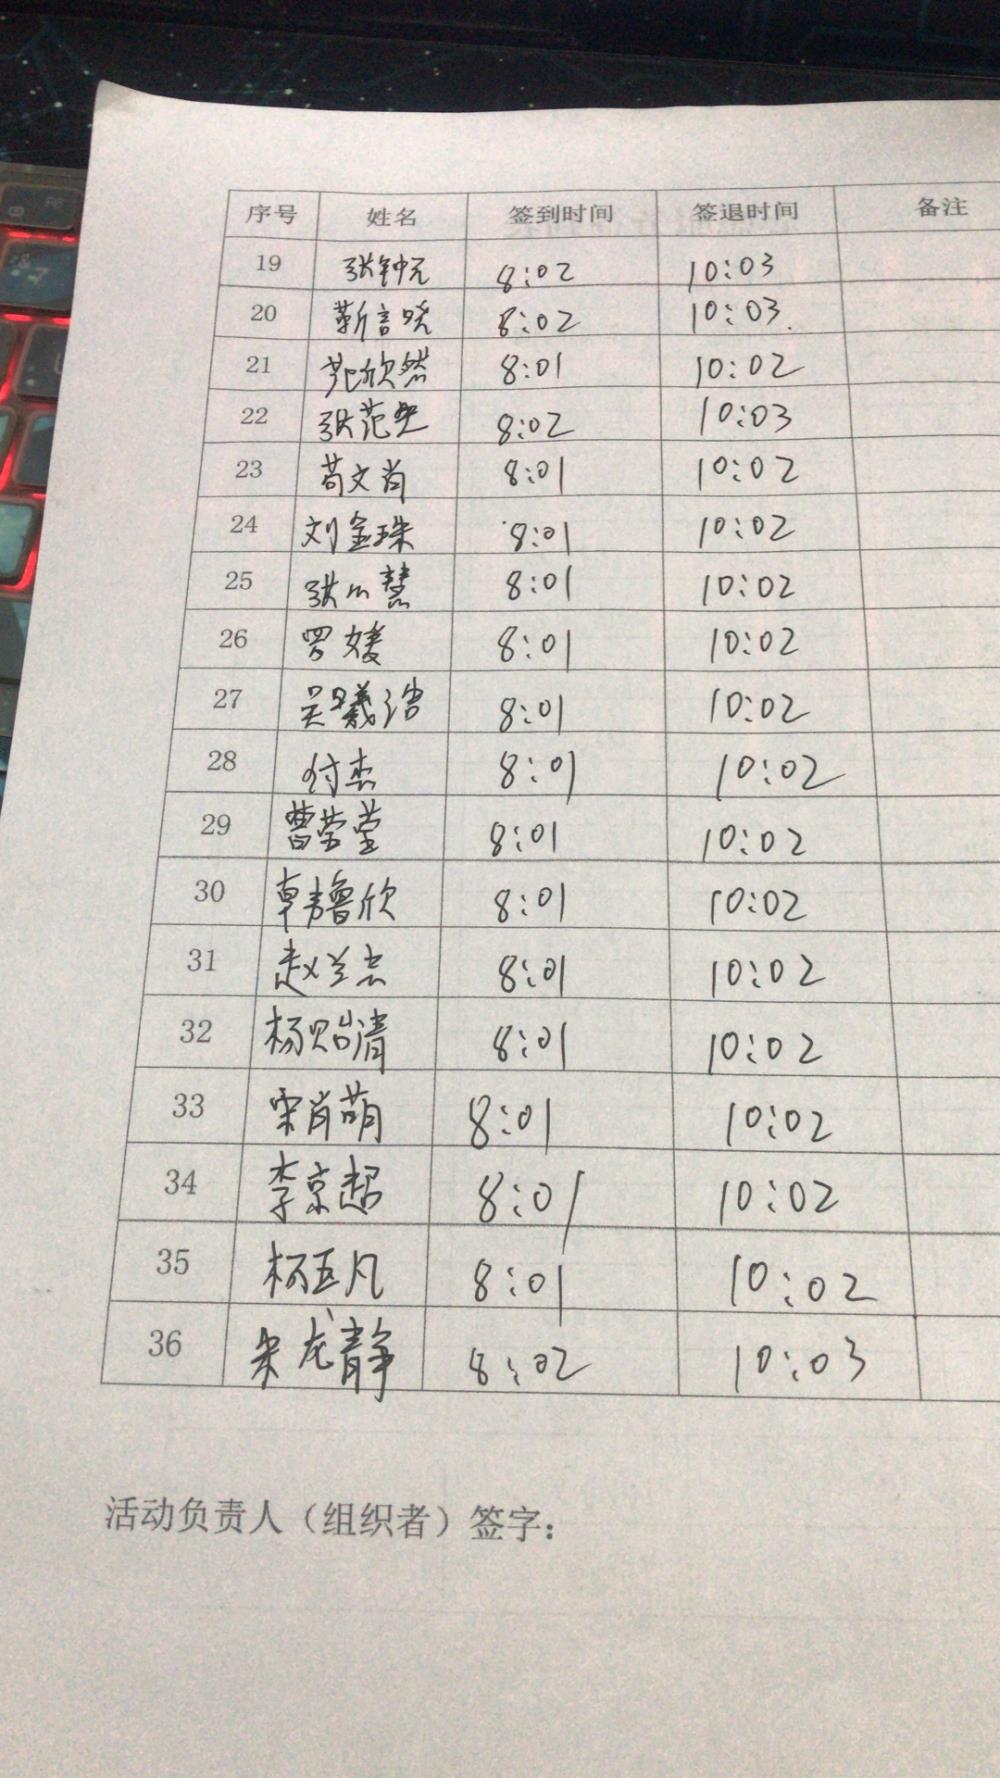 序号 姓名 签到时间 签退时间 备注
19 张钟元 8:02 10:03
20 靳言晓 8:02 10:03
21 范欣然 8:01 10:02
22 张范 8:02 10:03
23 苟文肖 8:01 10:02
24 刘金珠 8:01 10:02
25 张心慧 8:01 10:02
26 罗媛 8:01 10:02
27 吴曦浩 8:01 10:02
28 付杰 8:01 10:02
29 曹荣莹 8:01 10:02
30 韩鲁欣 8:01 10:02
31 赵兰杰 8:01 10:02
32 杨贻清 8:01 10:02
33 宋肖萌 8:01 10:02
34 李京超 8:01 10:02
35 杨玉凡 8:01 10:02
36 朱龙静 8:02 10:03
活动负责人（组织者）签字：